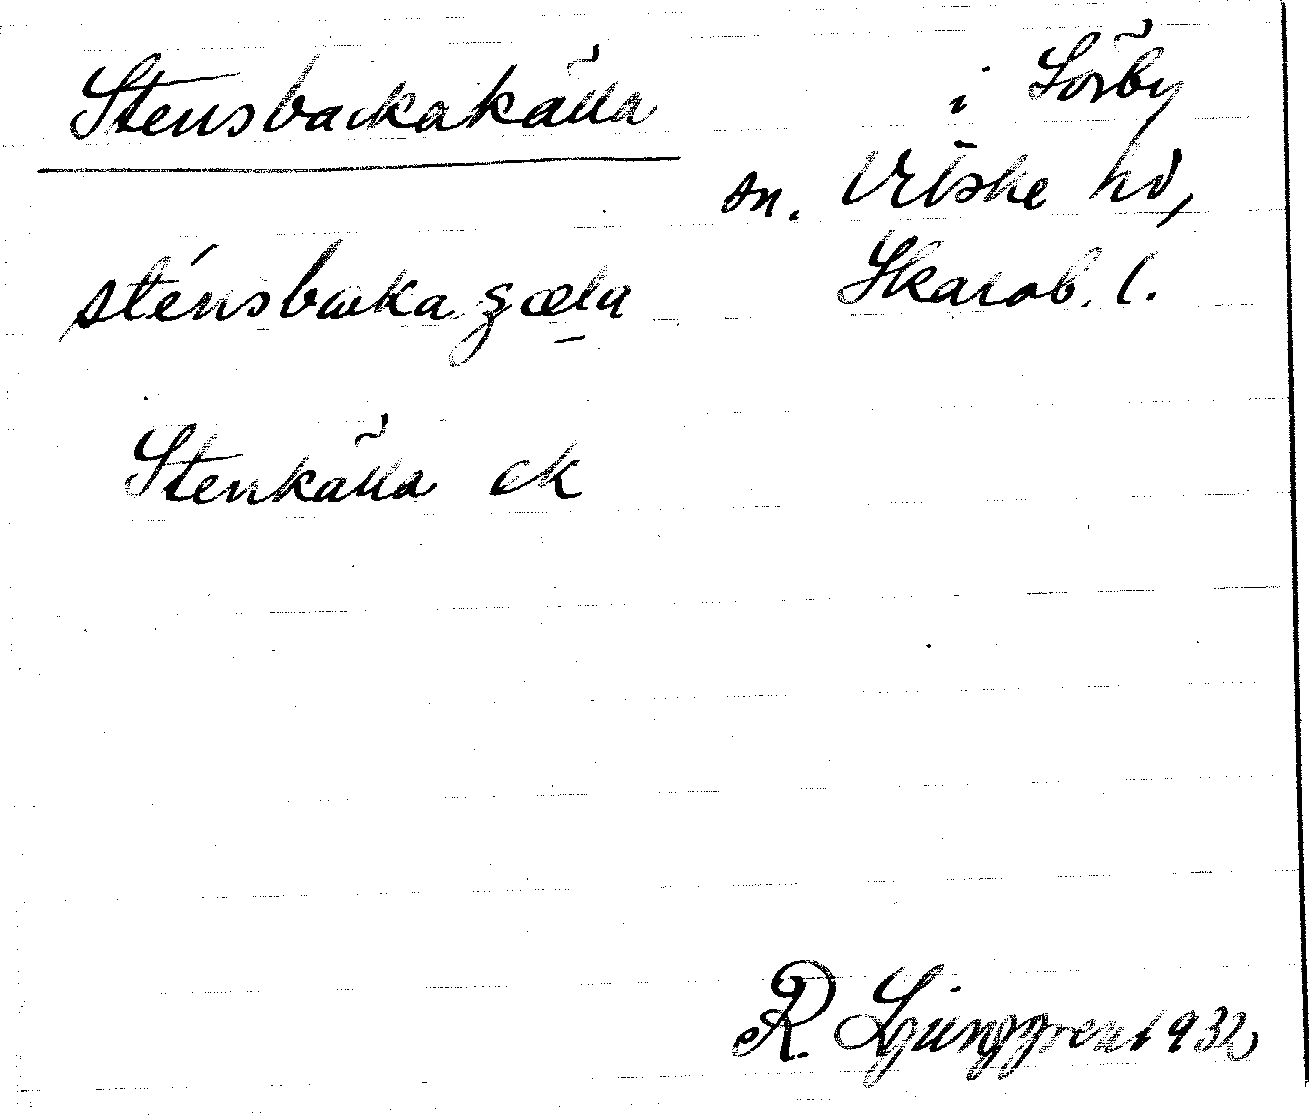 Stensbackakälla
i Sörby
sn. Vilske hd,
Skarab. l.
sténsbaka
Stenkälla ek
R Ljunggren 1932